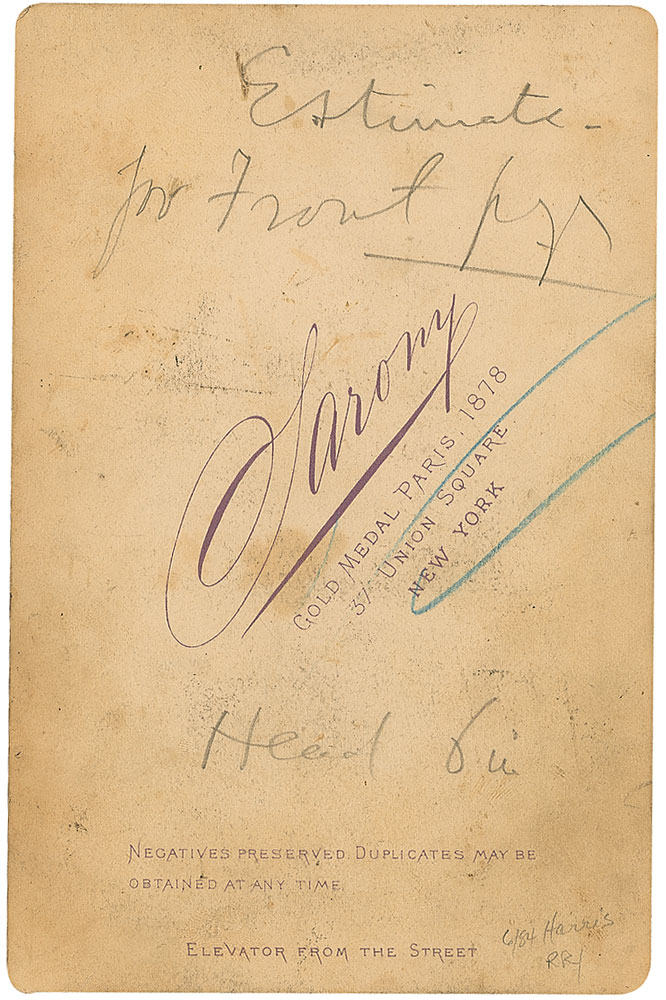 Estimate -
for Front
Sarony
GOLD MEDAL PARIS, 1878
37 UNION SQUARE
NEW YORK
Head
NEGATIVES PRESERVED. DUPLICATES MAY BE
OBTAINED AT ANY TIME.
ELEVATOR FROM THE STREET
6/84 Harris
RR/